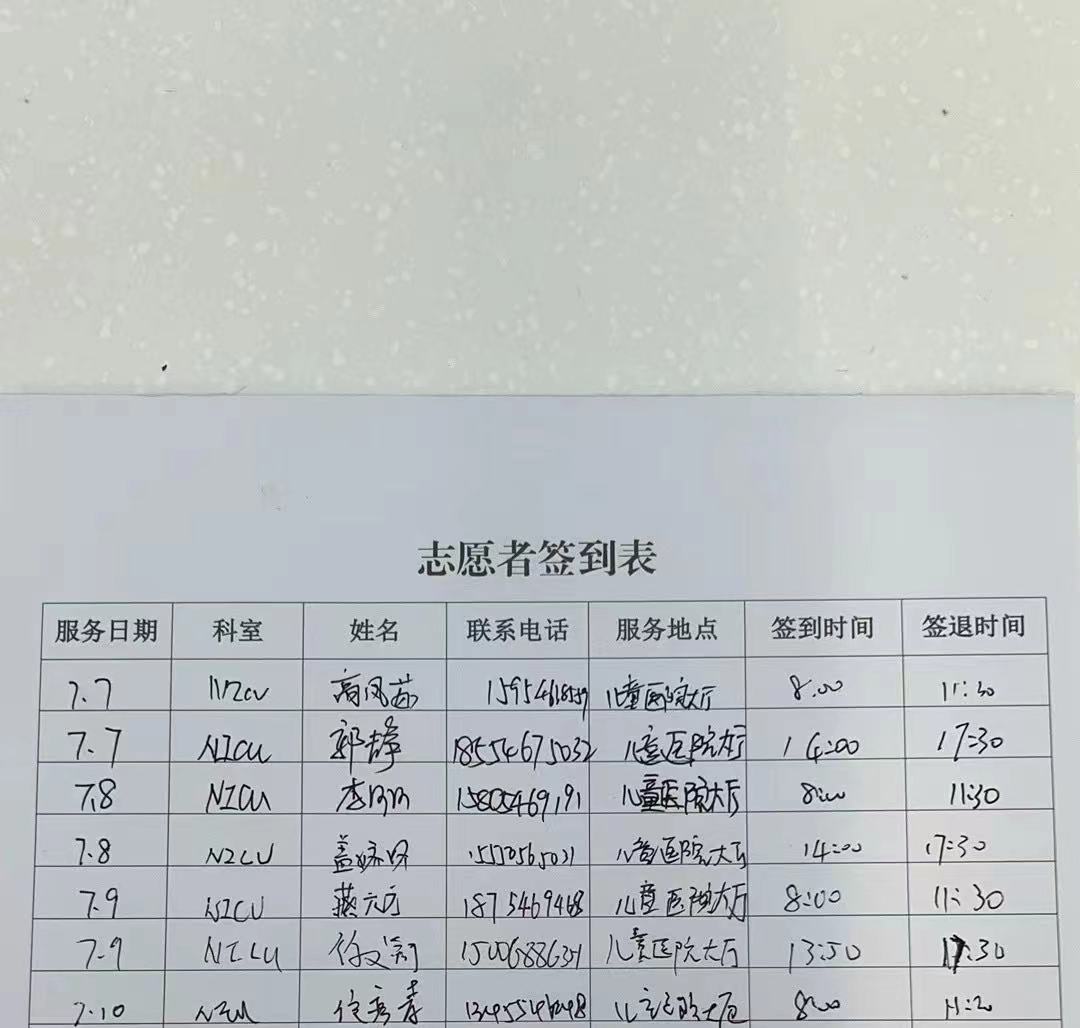 志愿者签到表
服务日期 科室 姓名 联系电话 服务地点 签到时间 签退时间
7.7 NICU 高凤茹 儿童医院大厅 8:00 11:30
7.7 NICU 郭静 18554675032 儿童医院大厅 14:00 17:30
7.8 NICU 李 15805469191 儿童医院大厅 8:00 11:30
7.8 NICU 盖 儿童医院大厅 14:00 17:30
7.9 NICU 燕 1875469468 儿童医院大厅 8:00 11:30
7.9 NICU 儿童医院大厅 13:50 17:30
7.10 NICU 8:00